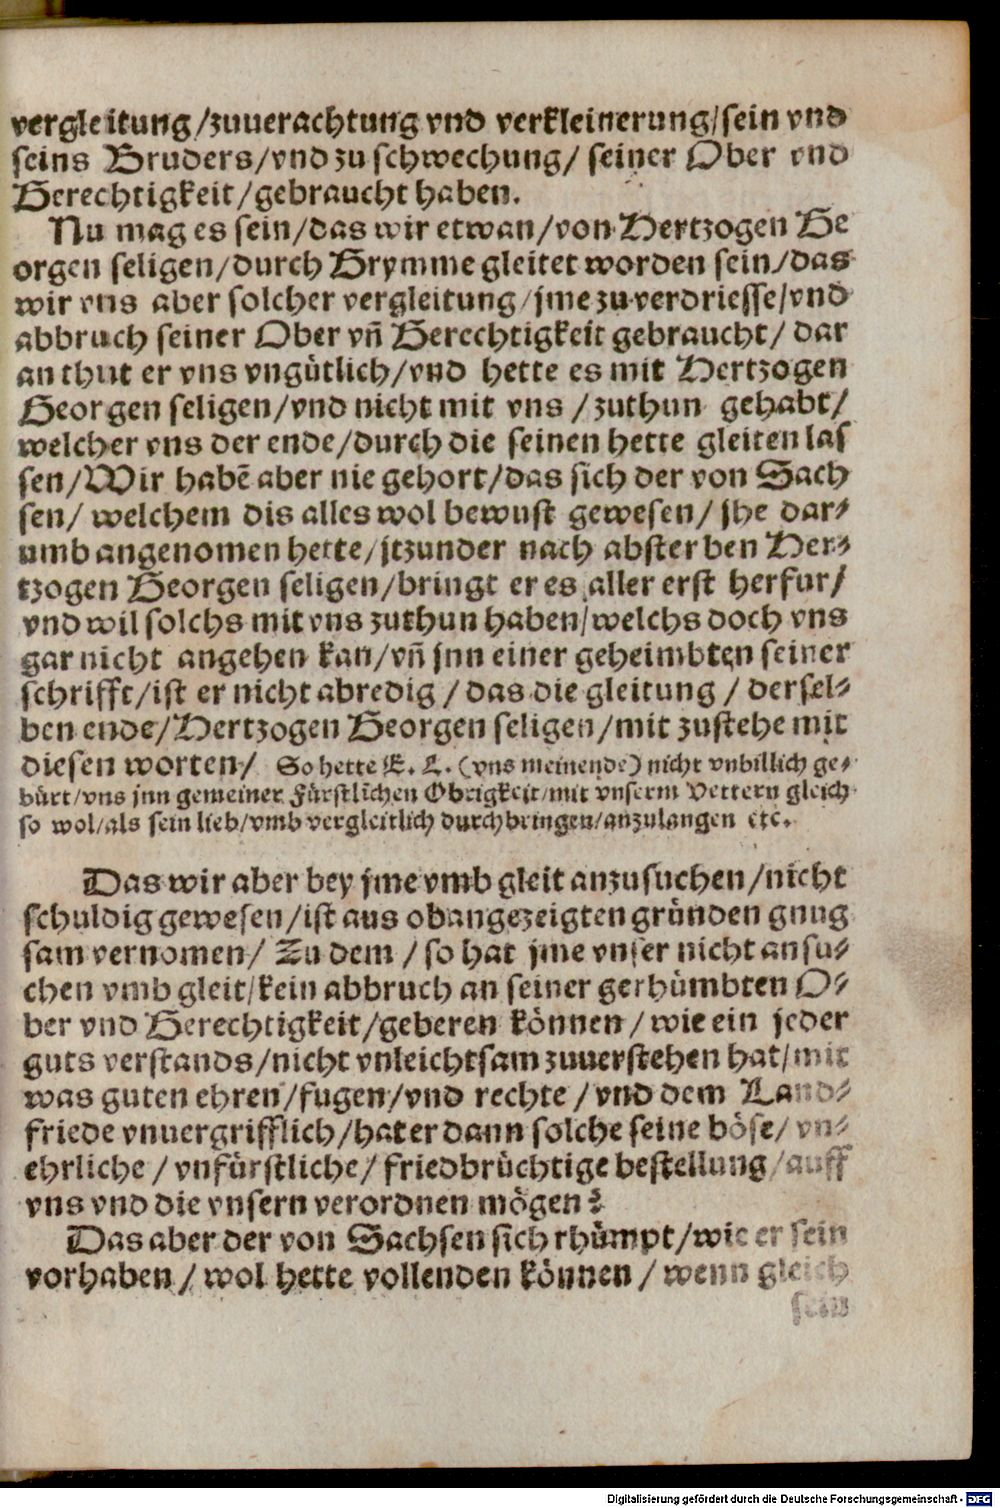 vergleitung/zuuerachtung vnd verkleinerung/sein vnd
seins Bruders/vnd zu schwechung/ seiner Ober vnd
Gerechtigkeit/gebraucht haben.
Nu mag es sein/das wir etwan/von Hertzogen Ge
orgen seligen/durch Grymme gleitet worden sein/das
wir vns aber solcher vergleitung/jme zu verdriesse/vnd
abbruch seiner Ober vñ Gerechtigkeit gebraucht/ dar
an thut er vns vngütlich/vnd hette es mit Hertzogen
Georgen seligen/vnd nicht mit vns / zuthun gehabt/
welcher vns der ende/durch die seinen hette gleiten las
sen/Wir habẽ aber nie gehort/das sich der von Sach
sen/ welchem dis alles wol bewust gewesen/ jhe dar⸗
umb angenomen hette/jtzunder nach absterben Her⸗
tzogen Georgen seligen/bringt er es aller erst herfur/
vnd wil solchs mit vns zuthun haben/welchs doch vns
gar nicht angehen kan/vñ jnn einer geheimbten seiner
schrifft/ist er nicht abredig / das die gleitung / dersel⸗
ben ende/Hertzogen Georgen seligen/mit zustehe mit
diesen worten/ So hette E. L. (vns meinende) nicht vnbillich ge⸗
bürt/vns jnn gemeiner Fürstlichen Obrigkeit/mit vnserm Vettern gleich
so wol/als sein lieb/vmb vergleitlich durchbringen/anzulangen etc.
Das wir aber bey jme vmb gleit anzusuchen/nicht
schuldig gewesen/ist aus obangezeigten gründen gnug
sam vernomen/ Zu dem / so hat jme vnser nicht ansu⸗
chen vmb gleit/kein abbruch an seiner gerhümbten O⸗
ber vnd Gerechtigkeit/geberen können / wie ein jeder
guts verstands/nicht vnleichtsam zuuerstehen hat/mit
was guten ehren/fugen/vnd rechte / vnd dem Land⸗
friede vnuergrifflich/hat er dann solche seine böse/ vn⸗
ehrliche / vnfürstliche/ friedbrüchtige bestellung/auff
vns vnd die vnsern verordnen mögen?
Das aber der von Sachsen sich rhümpt/wie er sein
vorhaben / wol hette vollenden können / wenn gleich
sein
Digitalisierung gefördert durch die Deutsche Forschungsgemeinschaft - DFG